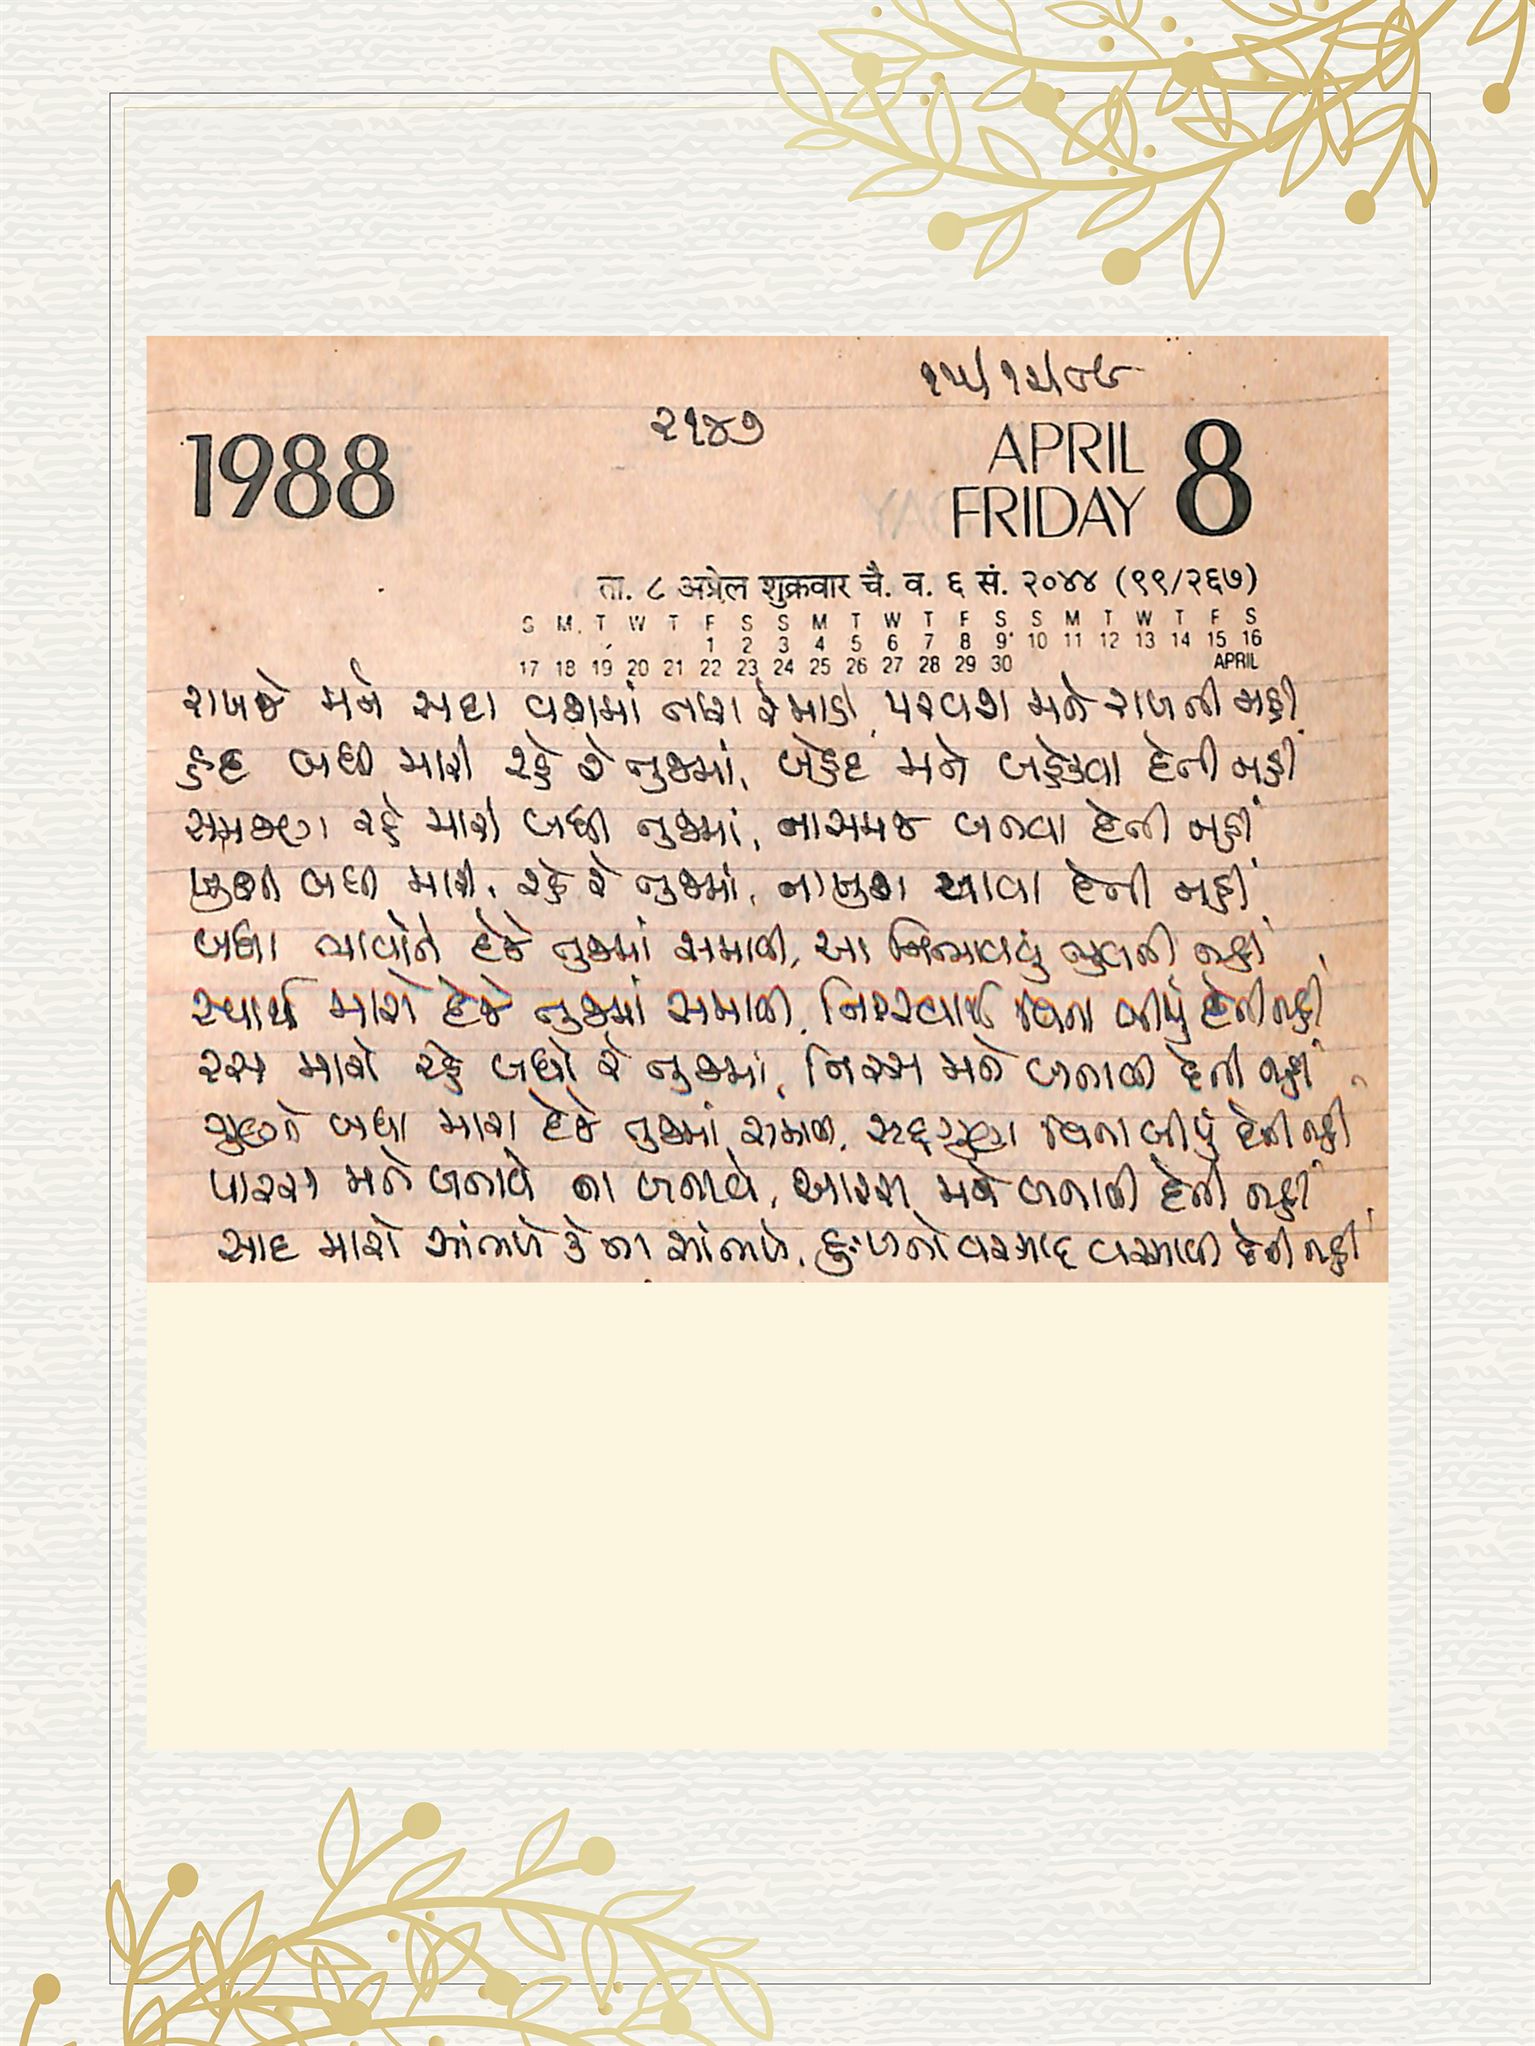 ૧૫/૧૨/૮૯
૨૧૪૭
1988
APRIL 8
FRIDAY
ता. ८ अप्रेल शुक्रवार चै. व. ६ सं. २०४४ (९९/२६७)
S M T W T F S S M T W T F S S M T W T F S
1 2 3 4 5 6 7 8 9 10 11 12 13 14 15 16
17 18 19 20 21 22 23 24 25 26 27 28 29 30 APRIL
રાખજે મને સદા વશમાં તારા રે માડી, પરવશ મને રાખતી નહીં
હદ બધી મારી રહે રે તુજમાં, બેહદ મને બહેકવા દેતી નહીં
સમજણ રહે મારી બધી તુજમાં, નાસમજ બનવા દેતી નહીં
ખુશી બધી મારી, રહે રે તુજમાં, નાખુશ થાવા દેતી નહીં
બધા ભાવોને દેજે તુજમાં સમાવી, આ નિભાવવું ભુલતી નહીં
સ્વાર્થ મારો દેજે તુજમાં સમાવી, નિઃસ્વાર્થ બિના બીજું દેતી નહીં
રસ મારો રહે બધો રે તુજમાં, નિરસ મને બનાવી દેતી નહીં
ગુણને બધા મારા દેજે તુજમાં સમાવી, સદ્દગુણ બિના બીજું દેતી નહીં
પારસ મને બનાવે ના બનાવે, આરસ મને બનાવી દેતી નહીં
સાદ મારો સાંભળે કે ના સાંભળે, દુઃખનો વરસાદ વરસાવી દેતી નહીં